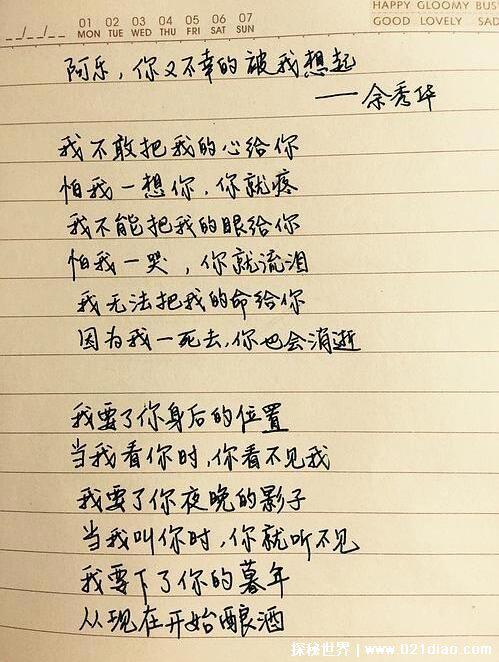 HAPPY GLOOMY BUS
01 02 03 04 05 06 07
MON TUE WED THU FRI SAT SUN
GOOD LOVELY SAD
阿乐，你又不幸的被我想起
——余秀华
我不敢把我的心给你
怕我一想你，你就疼
我不能把我的眼给你
怕我一哭，你就流泪
我无法把我的命给你
因为我一死去，你也会消逝
我要了你身后的位置
当我看你时，你看不见我
我要了你夜晚的影子
当我叫你时，你就听不见
我要下了你的暮年
从现在开始酿酒
探秘世界｜www.021diao.com